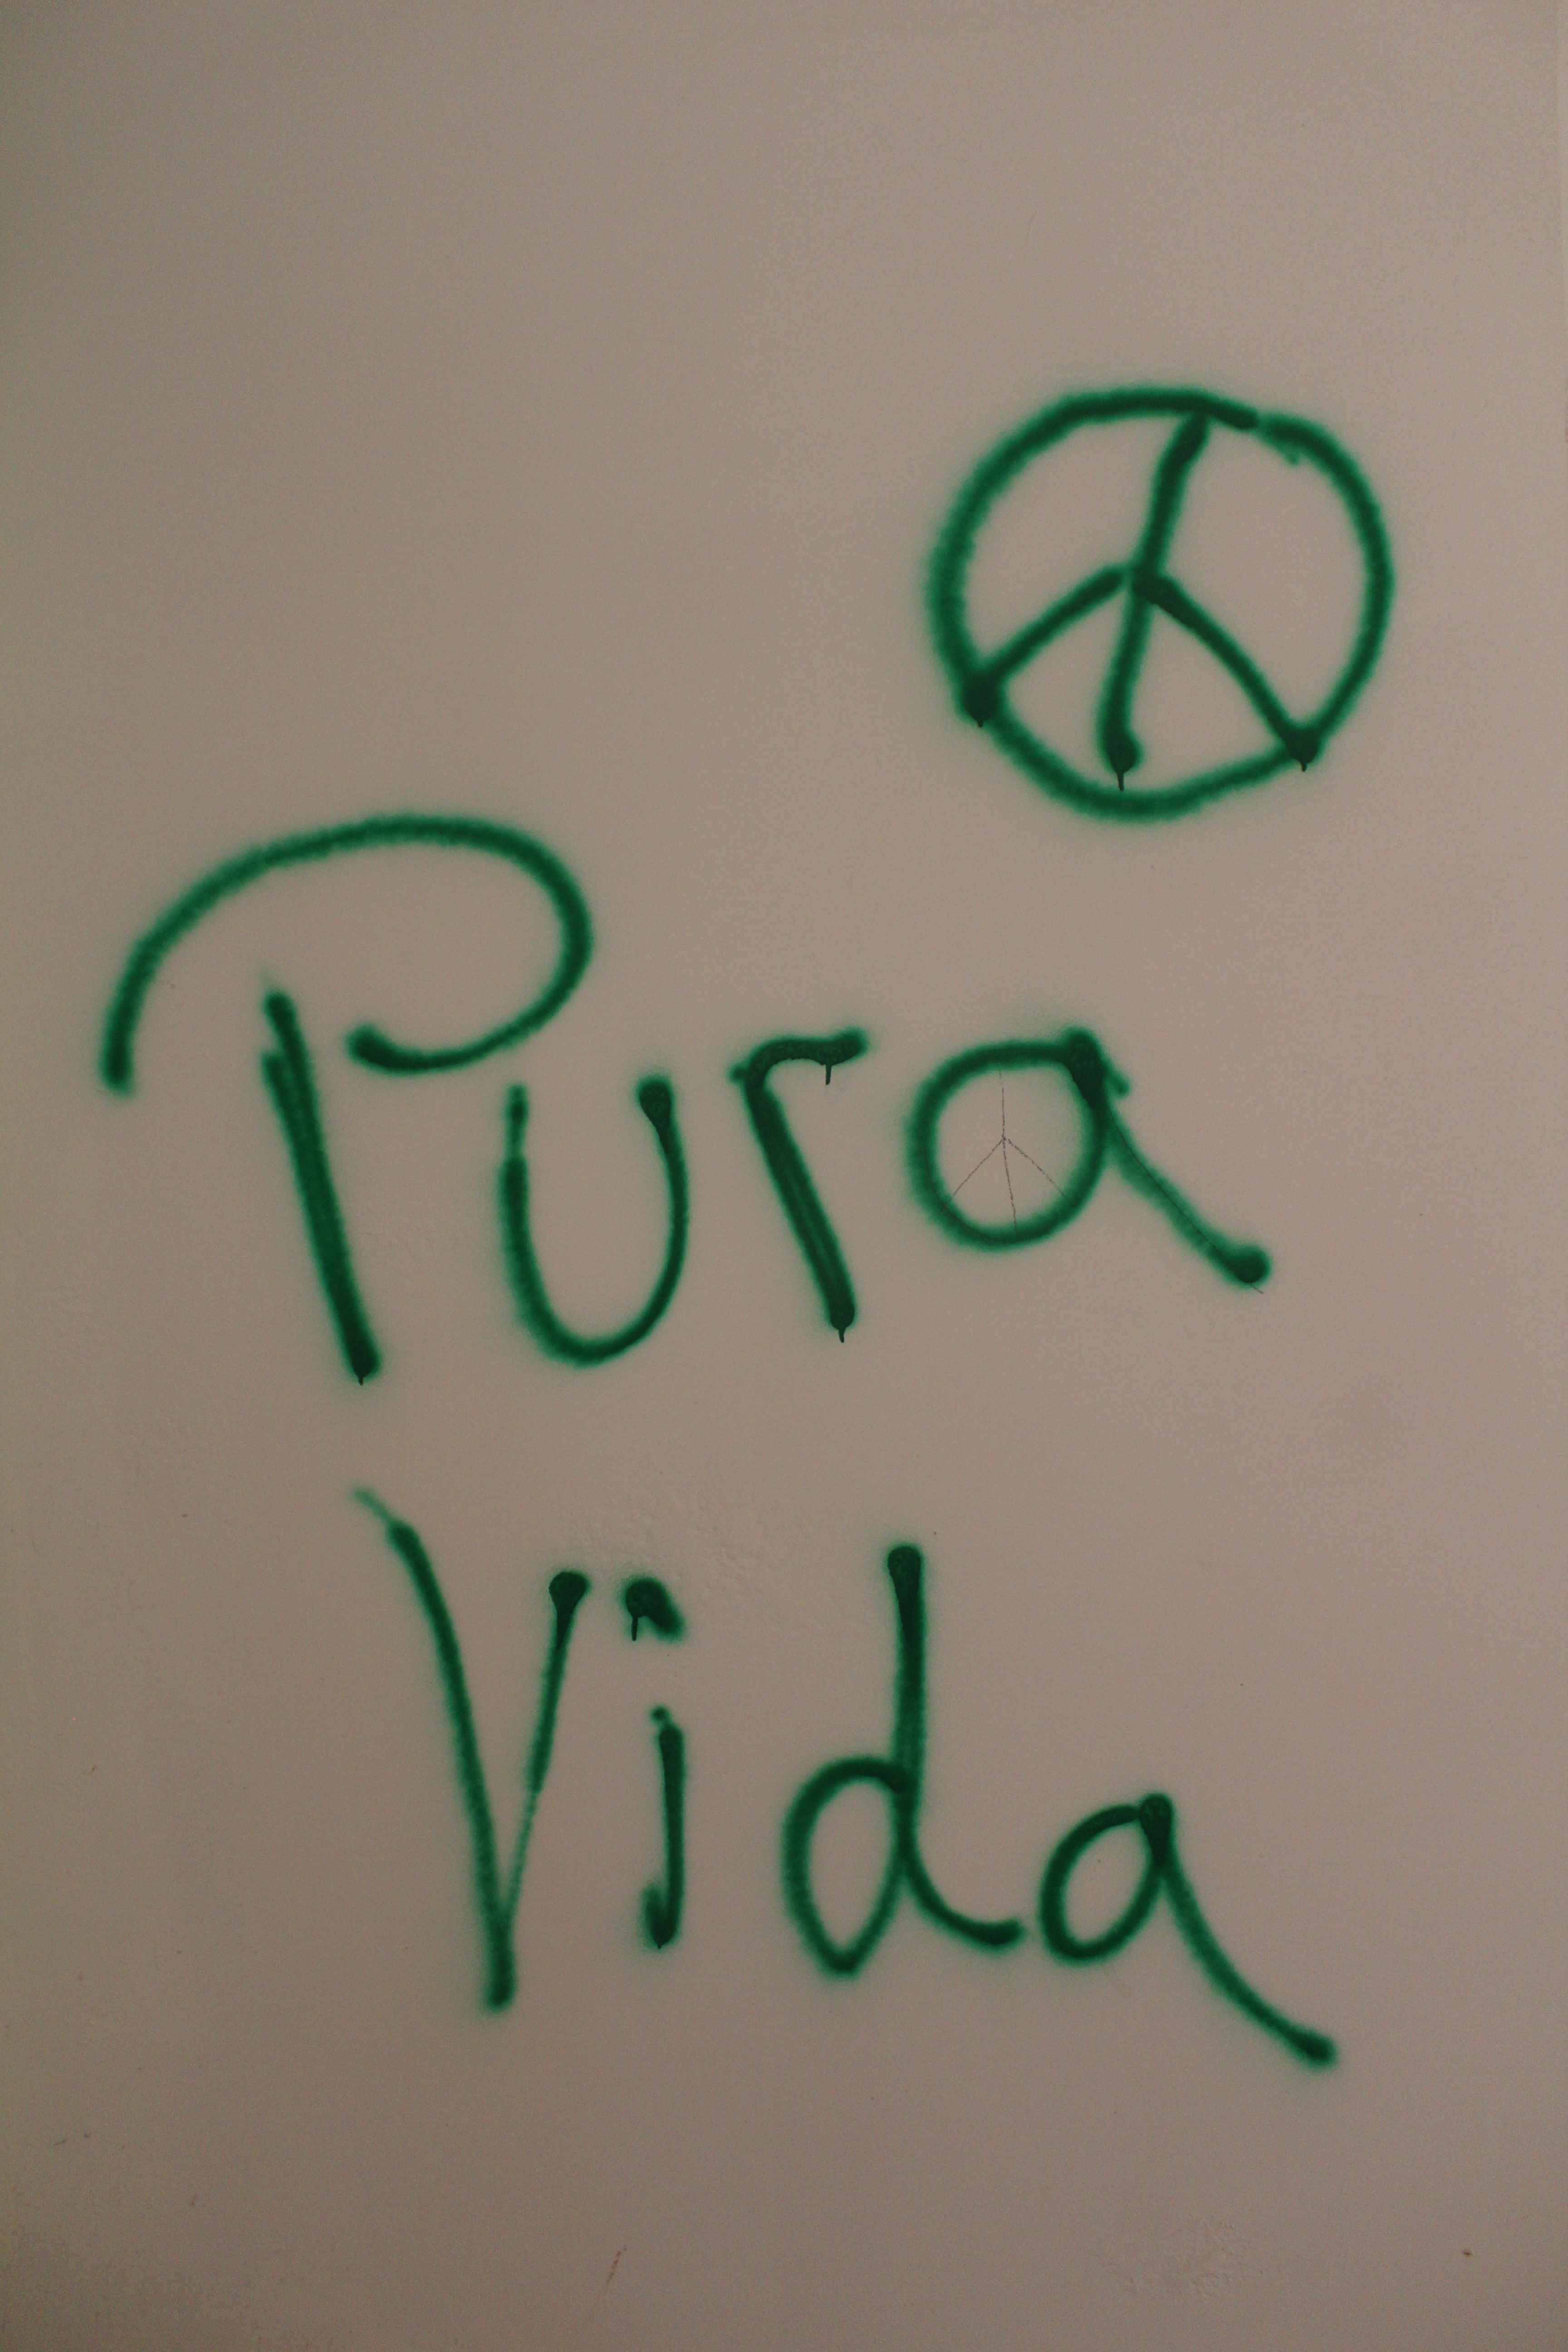 Pura
Vida